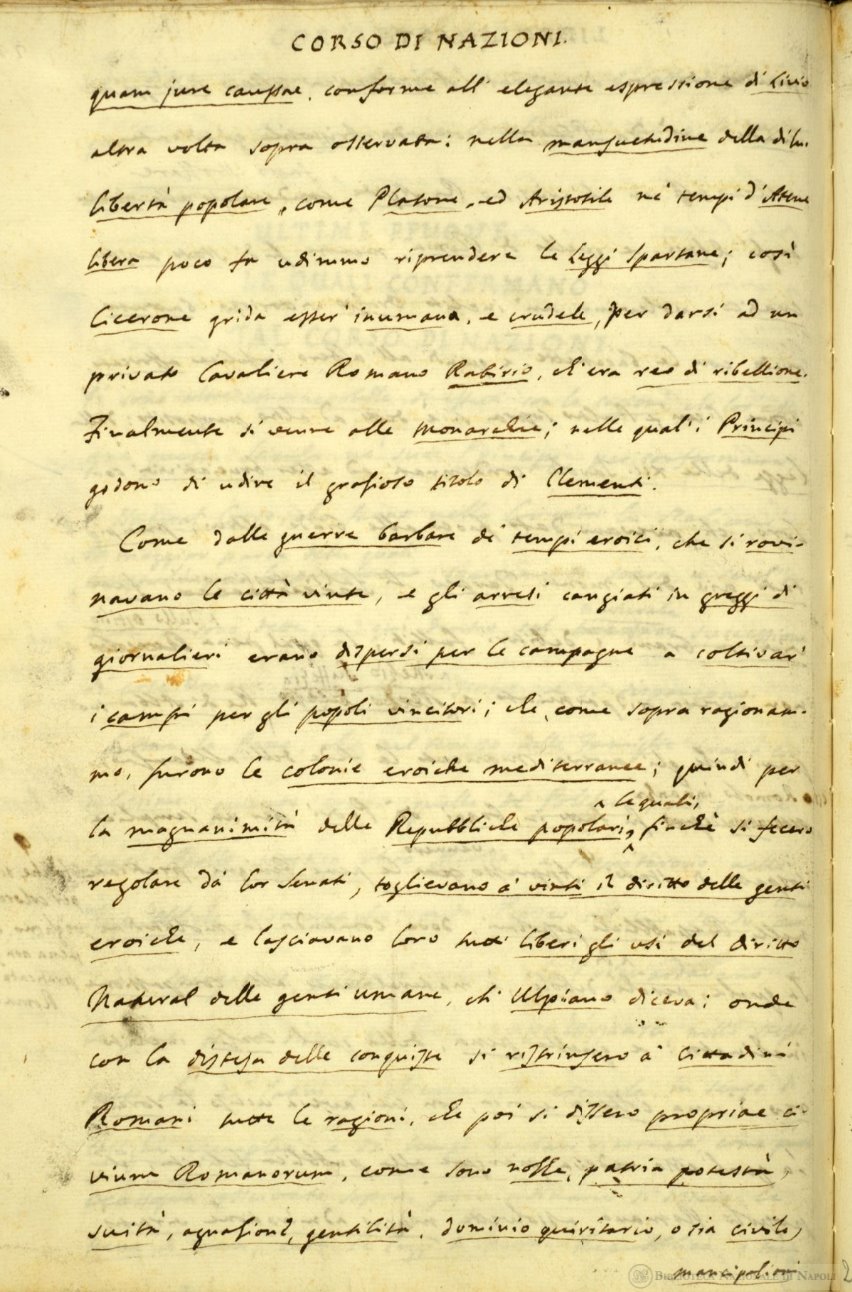 CORSO DI NAZIONI.
quam jure caussae, conforme all' elegante espressione di Livio
altra volta sopra osservata: nella mansuetudine della
libertà popolare, come Platone, ed Aristotile ne' tempi d'Atene
libera poco fa udimmo riprendere le Leggi Spartane; così
Cicerone grida esser' inumana, e crudele, per darsi ad un
privato Cavaliere Romano Rabirio, ch'era reo di ribellione.
Finalmente si venne alle Monarchie; nelle quali i Principi
godono di udire il grazioso titolo di Clementi.
Come dalle guerre barbare de' tempi eroici, che si rovi-
navano le città vinte, e gli arresi cangiati in greggi di
giornalieri erano dispersi per le campagne a coltivar'
i campi per gli popoli vincitori; che, come sopra ragionam-
mo, furono le colonie eroiche mediterranee; quindi per
le quali,
la magnanimità delle Repubbliche popolari, finchè si fecero
regolare da' lor Senati, toglievano a' vinti il diritto delle genti
eroiche, e lasciavano loro tutti liberi gli usi del diritto
Natural delle genti umane, ch' Ulpiano diceva: onde
con la distesa delle conquiste si ristrinsero a' Cittadini
Romani tutte le ragioni, che poi si dissero propriae ci-
vium Romanorum, come sono nozze, patria potestà,
suità, agnazione, gentilità, dominio quiritario, o sia civile,
mancipazioni
BIBLIOTECA NAZIONALE DI NAPOLI